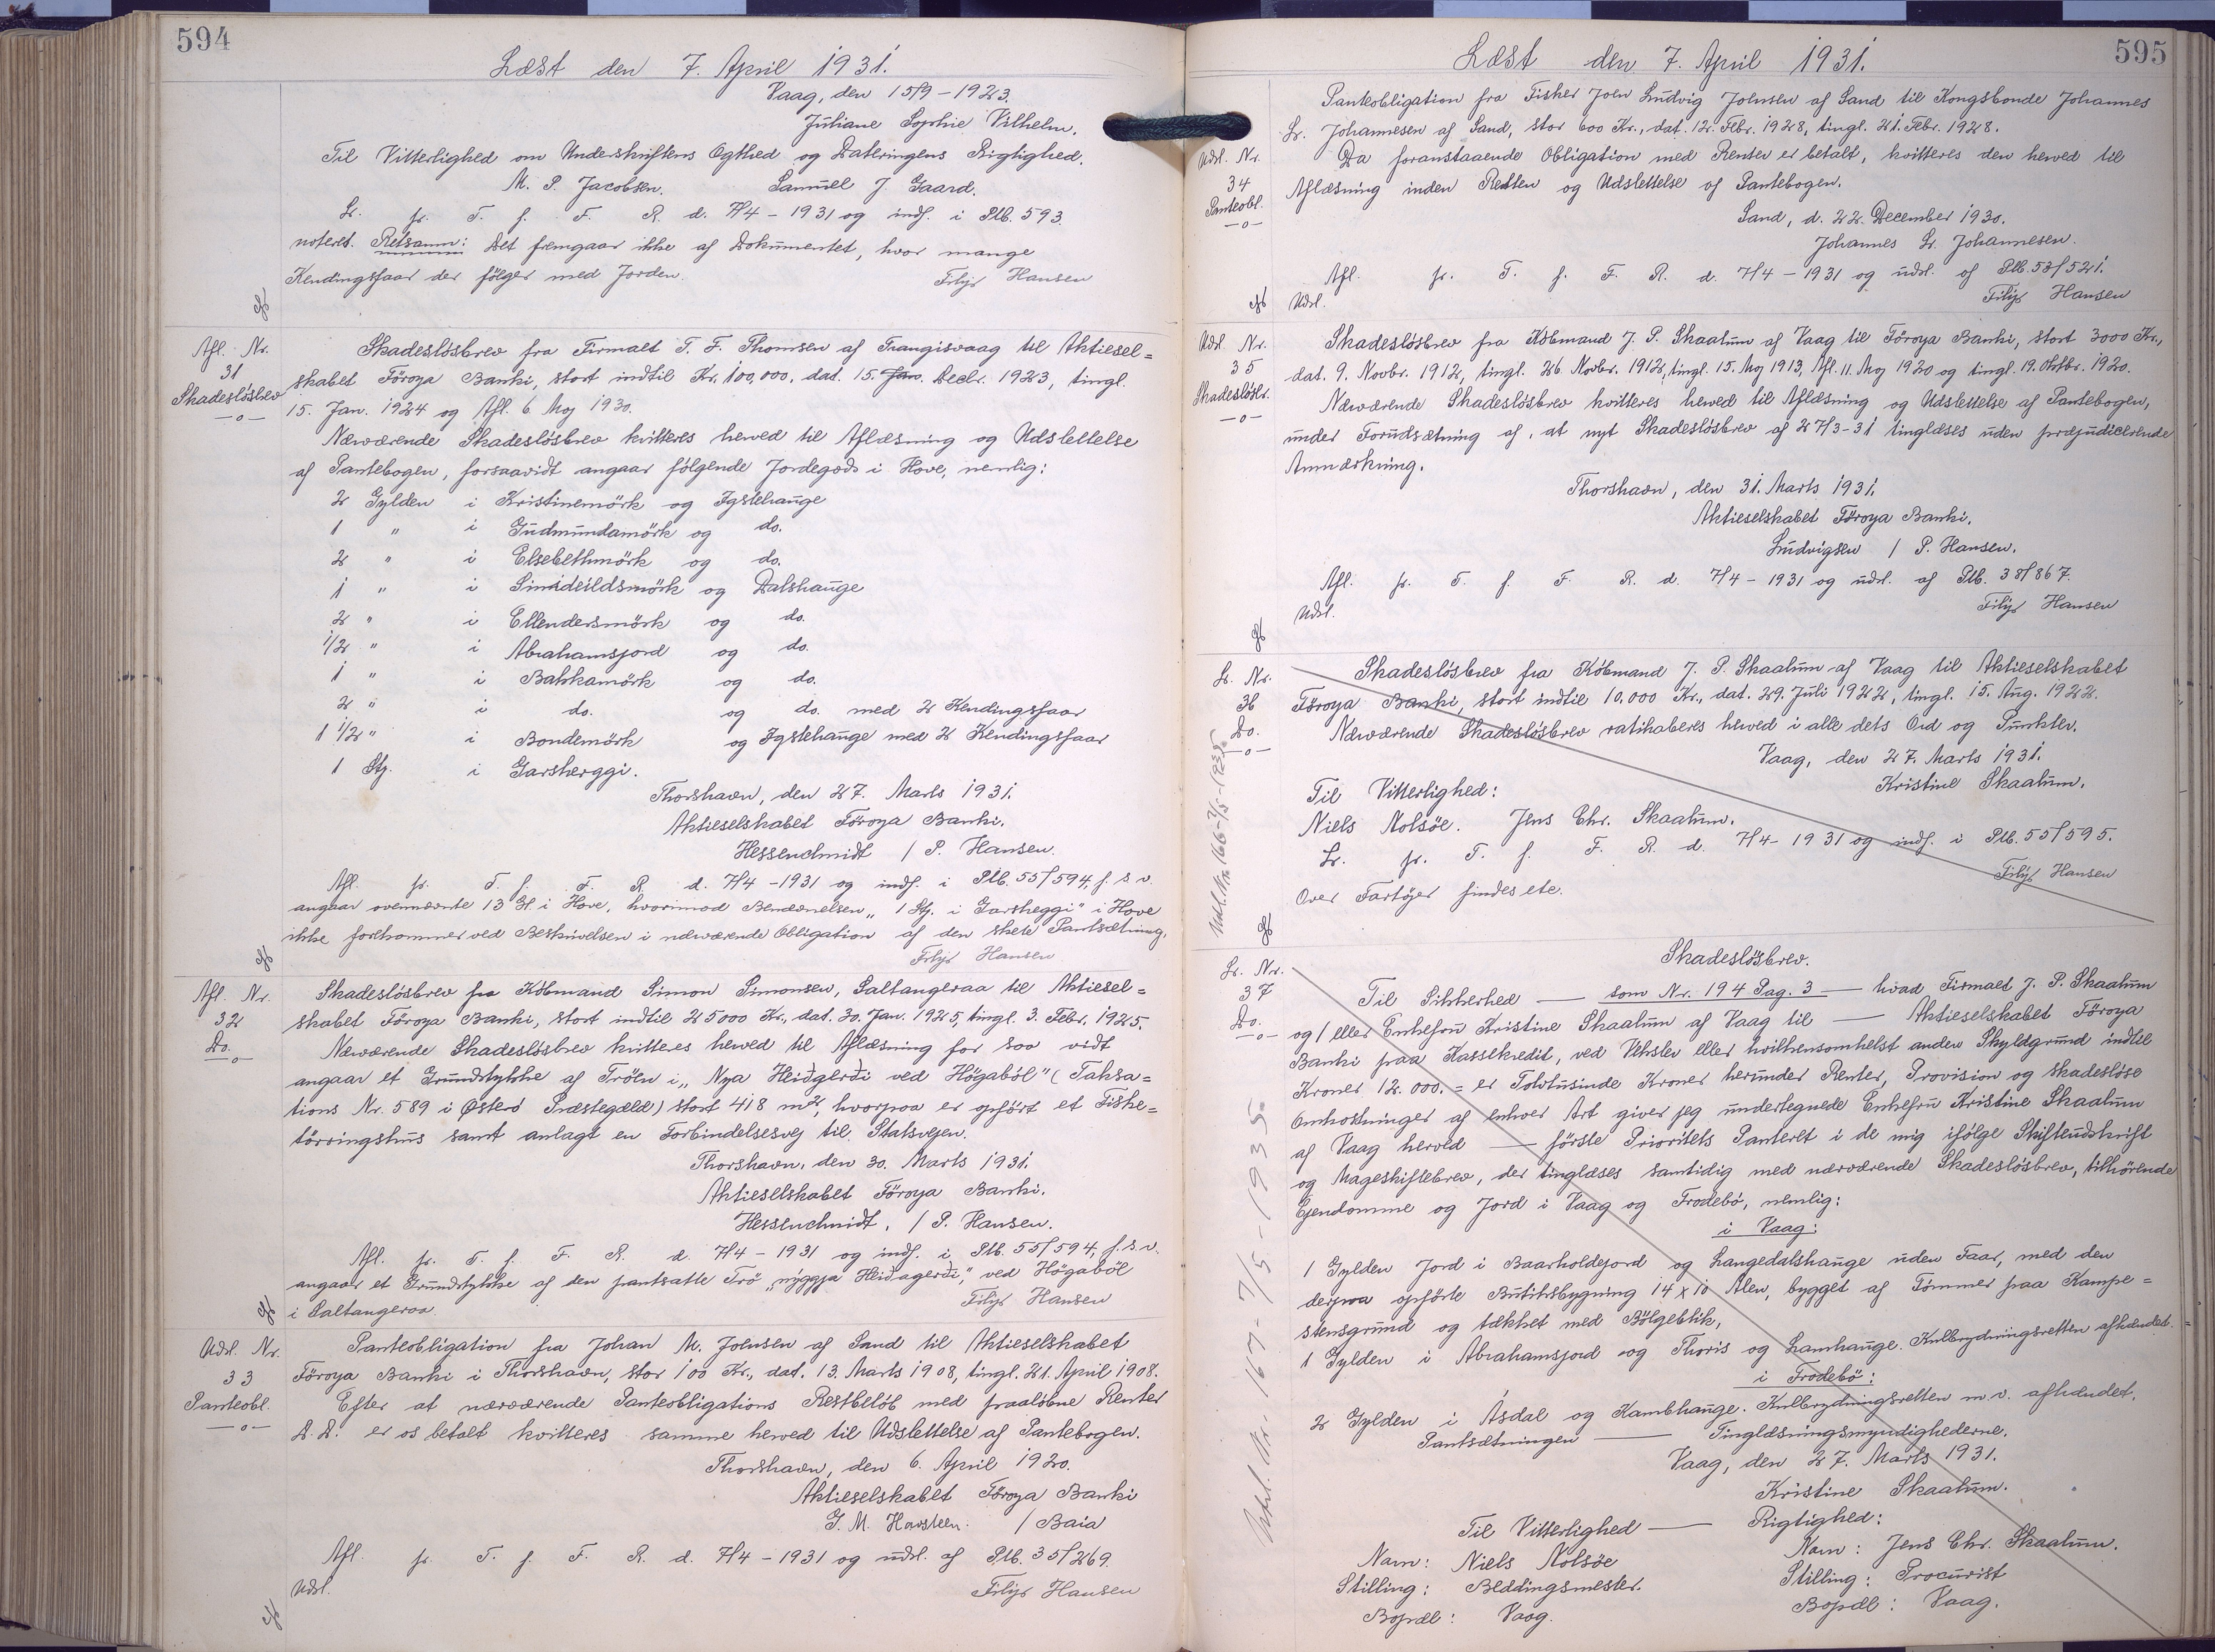 594
Læst den 7. April 1931.
Vaag, den 15/9-1923.
Juliane Sophie Vilhelm.
Til Vitterlighed om Underskriftens Ægthed og Dateringens Rigtighed.
M. P. Jacobsen. Samuel J. Gaard.
Lr. fr. T. f. F. R. d. 7/4-1931 og indf. i Ptb. 593.
noteret. Retsanm: Det fremgaar ikke af Dokumentet, hvor mange
Kendingsfaar der følger med Jorden. Filip Hansen
Afl. Nr. 31 Skadesløsbrev -o-
Skadesløsbrev fra Firmaet T. F. Thomsen af Trangisvaag til Aktiesel=
skabet Föroya Banki, stort indtil Kr. 100,000, dat. 15. Jan. Decbr. 1923, tingl.
15. Jan. 1924 og Afl. 6. Maj 1930.
Nærværende Skadesløsbrev kvitteres herved til Aflæsning og Udslettelse
af Pantebogen, forsaavidt angaar følgende Jordegods i Hove, nemlig:
2 Gylden i Kristinemörk og Igstehauge
1 " i Gudmundamörk og do.
2 " i Elsebethmörk og do.
1 " i Simideildsmörk og Dalshauge
2 " i Ellendersmörk og do.
1/2 " i Abrahamsjord og do.
1 " i Bakkamörk og do.
2 " i do. og do. med 2 Kendingsfaar
1 1/2 " i Bondemörk og Igstehauge med 2 Kendingsfaar
1 Stj. i Garsherggi.
Thorshavn, den 27. Marts 1931.
Aktieselskabet Föroya Banki.
Hessenchmidt / P. Hansen.
Afl. fr. T. f. F. R. d. 7/4-1931 og indf. i Ptb. 55/594, f. s. v.
angaar ovennævnte 13 Gl. i Hove, hvorimod Benævnelsen "1 Stj. i Garsheggi" i Hove
ikke forekommer ved Beskrivelsen i nærværende Obligation af den skete Pantsætning.
Filip Hansen
Afl. Nr. 32 Do. -o-
Skadesløsbrev fra Købmand Simon Simonsen, Saltangeraa til Aktiesel=
skabet Föroya Banki, stort indtil 25000 Kr., dat. 30. Jan. 1925, tingl. 3. Febr. 1925.
Nærværende Skadesløsbrev kvitteres herved til Aflæsning for saa vidt
angaar et Grundstykke af Tröen i "Nya Heidgerði ved Högaból" (Taksa=
tions Nr. 589 i Østerø Præstegæld) stort 418 m², hvorpaa er opført et Fiske=
törringshus samt anlagt en Forbindelsesvej til Statsvejen.
Thorshavn, den 30. Marts 1931.
Aktieselskabet Föroya Banki.
Hessenchmidt. / P. Hansen.
Afl. fr. T. f. F. R. d. 7/4-1931 og indf. i Ptb. 55/594, f. s. v.
angaar et Grundstykke af den pantsatte Trö "nýggja Heiðagerði," ved Högaból
i Saltangeraa. Filip Hansen
Udsl. Nr. 33 Panteobl. -o-
Panteobligation fra Johan M. Johnsen af Sand til Aktieselskabet
Föroya Banki i Thorshavn, stor 100 Kr., dat. 13. Marts 1908, tingl. 21. April 1908.
Efter at nærværende Panteobligations Restbeløb med paaløbne Renter
D. D. er os betalt kvitteres samme herved til Udslettelse af Pantebogen.
Thorshavn, den 6. April 1920.
Aktieselskabet Föroya Banki
G. M. Havsteen. / Baia
Afl. fr. T. f. F. R. d. 7/4-1931 og udsl. af Ptb. 35/269.
Udsl. Filip Hansen
595
Læst den 7. April 1931.
Udsl. Nr. 34 Panteobl. -o-
Panteobligation fra Fisker Joen Ludvig Johnsen af Sand til Kongsbonde Johannes
Fr. Johannesen af Sand, stor 600 Kr., dat. 12. Febr. 1928, tingl. 21. Febr. 1928.
Da foranstaaende Obligation med Renter er betalt, kvitteres den herved til
Aflæsning inden Retten og Udslettelse af Pantebogen.
Sand, d. 22. December 1930.
Johannes Fr. Johannesen.
Afl. fr. T. f. F. R. d. 7/4-1931 og udsl. af Ptb. 53/521.
Udsl. Filip Hansen
Udsl. Nr. 35 Skadesløsbr. -o-
Skadesløsbrev fra Købmand J. P. Skaalum af Vaag til Föroya Banki, stort 3000 Kr.,
dat. 9. Novbr. 1912, tingl. 26. Novbr. 1912, tingl. 15. Maj 1913, Afl. 11. Maj 1920 og tingl. 19. Oktbr. 1920.
Nærværende Skadesløsbrev kvitteres herved til Aflæsning og Udslettelse af Pantebogen,
under Forudsætning af, at nyt Skadesløsbrev af 27/3-31 tinglæses uden præjudicerende
Anmærkning.
Thorshavn, den 31. Marts 1931.
Aktieselskabet Föroya Banki.
Ludvigsen / P. Hansen.
Afl. fr. T. f. F. R. d. 7/4-1931 og udsl. af Ptb. 38/867.
Udsl. Filip Hansen
Lr. Nr. 36 Do. -o-
Skadesløsbrev fra Købmand J. P. Skaalum af Vaag til Aktieselskabet
Föroya Banki, stort indtil 10,000 Kr., dat. 29. Juli 1922, tingl. 15. Aug. 1922.
Nærværende Skadesløsbrev ratihaberes herved i alle dets Ord og Punkter.
Vaag, den 27. Marts 1931.
Kristine Skaalum.
Til Vitterlighed:
Niels Nolsøe. Jens Chr. Skaalum.
Lr. fr. T. f. F. R. d. 7/4-1931 og indf. i Ptb. 55/595.
Filip Hansen
Over Fartøjer findes etc.
Udsl. Nr. 166-7/5-1935
Lr. Nr. 37 Do. -o-
Skadesløsbrev.
Til Sikkerhed — som Nr. 194 Pag. 3 — hvad Firmaet J. P. Skaalum
og / eller Enkefru Kristine Skaalum af Vaag til — Aktieselskabet Föroya
Banki paa Kassekredit, ved Veksler eller hvilkensomhelst anden Skyldgrund indtil
Kroner 12.000.= er Tolvtusinde Kroner herunder Renter, Provision og skadesløse
Omkostninger af enhver Art giver jeg undertegnede Enkefru Kristine Skaalum
af Vaag herved — første Prioritets Panteret i de mig ifølge Skifteudskrift
og Mageskiftebrev, der tinglæses samtidig med nærværende Skadesløsbrev, tilhørende
Ejendomme og Jord i Vaag og Frodebø, nemlig:
i Vaag:
1 Gylden Jord i Baarholdejord og Langedalshauge uden Faar, med den
derpaa opførte Butiksbygning 14 x 10 Alen, bygget af Tømmer paa Kampe=
stensgrund og tækket med Bölgeblik,
1 Gylden i Abrahamsjord og Thoris og Lamhauge. Kulbrydningsretten afhændet.
i Frodebø:
2 Gylden i Åsdal og Kambhauge. Kulbrydningsretten m. v. afhændet.
Pantsætningen — Tinglæsningsmyndighederne.
Vaag, den 27. Marts 1931.
Kristine Skaalum.
Til Vitterlighed — Rigtighed:
Navn: Niels Nolsøe Navn: Jens Chr. Skaalum.
Stilling: Beddingsmester. Stilling: Procurist
Bopæl: Vaag. Bopæl: Vaag.
Udsl. Nr. 167-7/5-1935